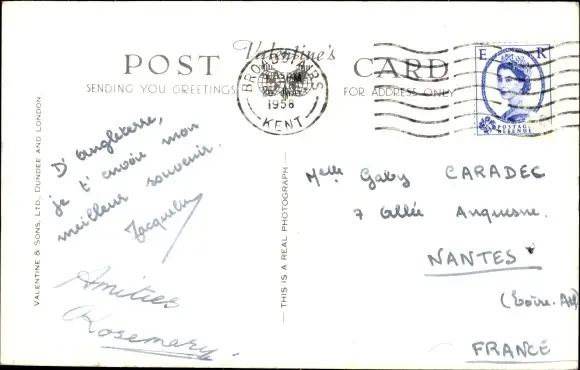 POST CARD
Valentine's
SENDING YOU GREETINGS
FOR ADDRESS ONLY
1958
KENT
E R
POSTAGE
REVENUE
D'Angleterre,
je t'envoie mon
meilleur souvenir.
Jacqueline
Amitiés
Rosemary.
VALENTINE & SONS, LTD., DUNDEE AND LONDON
— THIS IS A REAL PHOTOGRAPH —
Melle Gaby CARADEC
7 Allée Duquesne.
NANTES
(Loire-Atl)
FRANCE